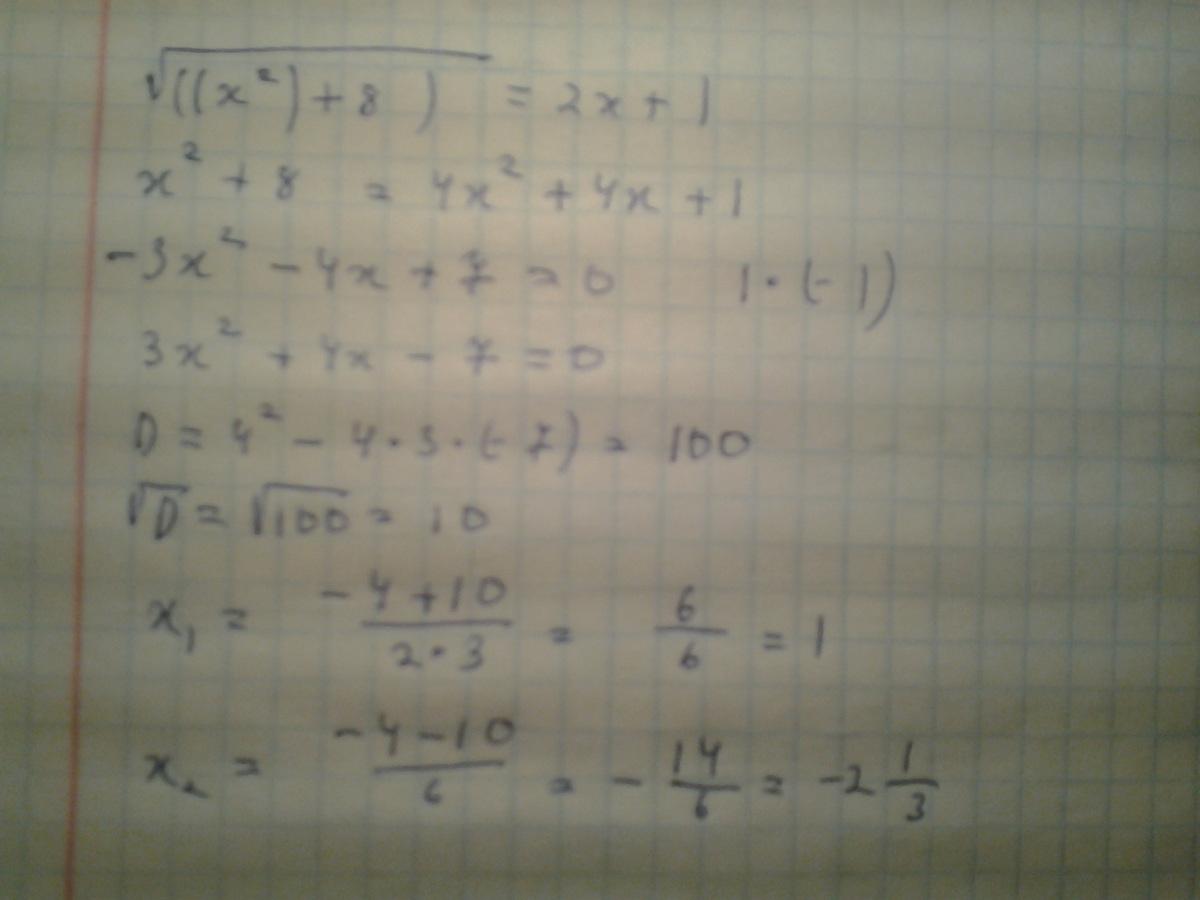 √((x²)+8) = 2x+1
x² + 8 = 4x² + 4x + 1
-3x² - 4x + 7 = 0 |·(-1)
3x² + 4x - 7 = 0
D = 4² - 4·3·(-7) = 100
√D = √100 = 10
x₁ = (-4+10)/(2·3) = 6/6 = 1
x₂ = (-4-10)/6 = -14/6 = -2 1/3